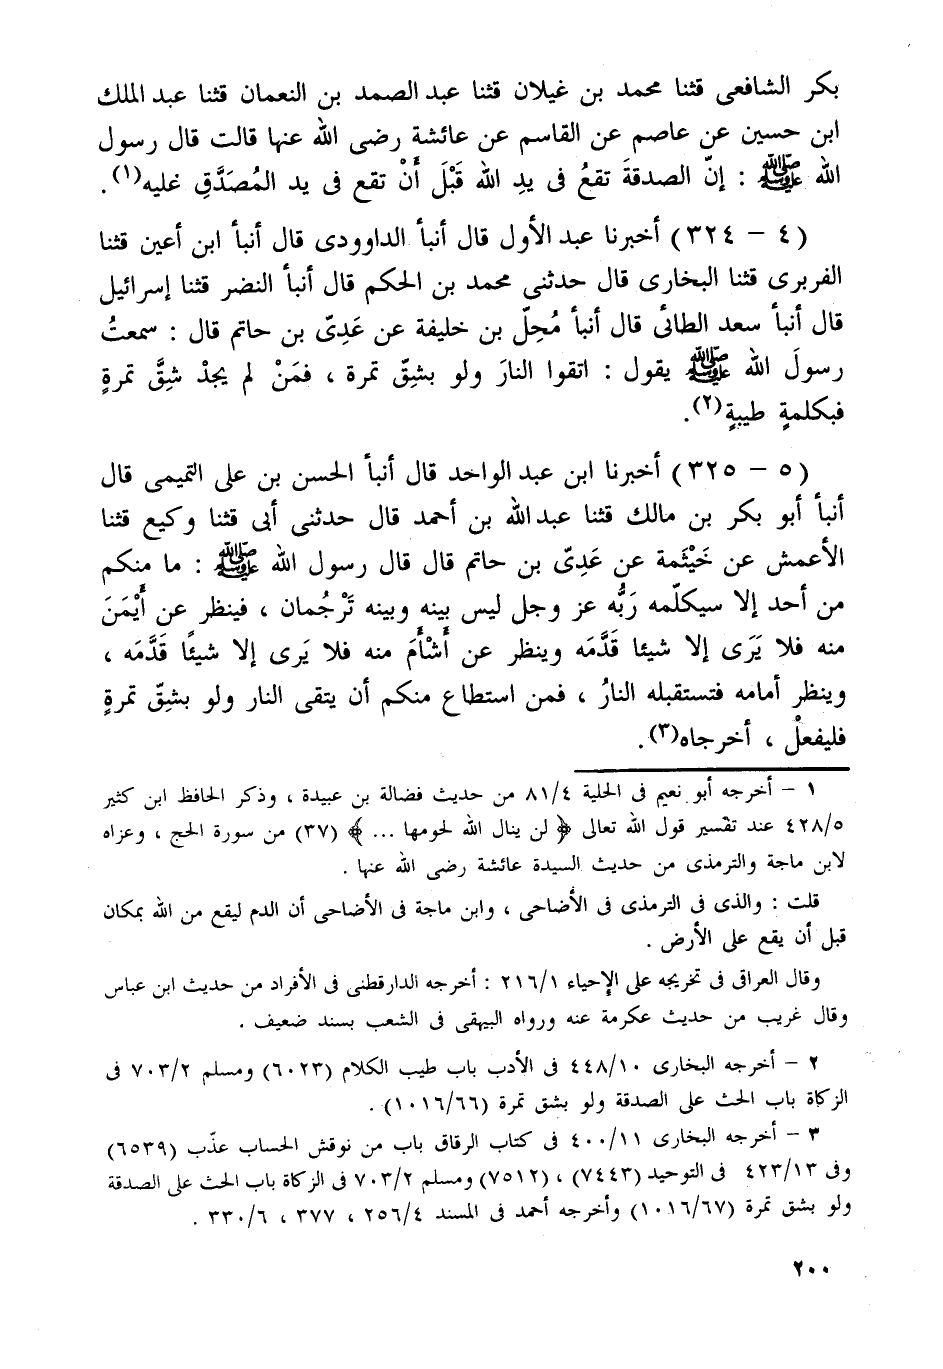 بكر الشافعى قثنا محمد بن غيلان قثنا عبد الصمد بن النعمان قثنا عبد الملك
ابن حسين عن عاصم عن القاسم عن عائشة رضى الله عنها قالت قال رسول
الله ﷺ : إنّ الصدقةَ تقعُ فى يدِ الله قَبْلَ أَنْ تقع فى يد المُصَدَّقِ غليه(١) .
(٤ – ٣٢٤) أخبرنا عبد الأول قال أنبأ الداوودى قال أنبأ ابن أعين قثنا
الفربرى قثنا البخارى قال حدثنى محمد بن الحكم قال أنبأ النضر قثنا إسرائيل
قال أنبأ سعد الطائى قال أنبأ مُحِلّ بن خليفة عن عَدِىّ بن حاتم قال : سمعتُ
رسولَ الله ﷺ يقول : اتقوا النارَ ولو بشِقّ تمرة ، فمَنْ لم يجدْ شِقَّ تمرةٍ
فبكلمةٍ طيبةٍ(٢).
(٥ – ٣٢٥) أخبرنا ابن عبد الواحد قال أنبأ الحسن بن على التميمى قال
أنبأ أبو بكر بن مالك قثنا عبد الله بن أحمد قال حدثنى أبى قثنا وكيع قثنا
الأعمش عن خَيْثَمة عن عَدِىّ بن حاتم قال قال رسول الله ﷺ : ما منكم
من أحد إلا سيكلّمه رَبُّه عز وجل ليس بينه وبينه تَرْجُمان ، فينظر عن أَيْمَنَ
منه فلا يَرَى إلا شيئا قَدَّمَه وينظر عن أَشْأَمَ منه فلا يَرى إلا شيئًا قَدَّمَه ،
وينظر أمامه فتستقبله النارُ ، فمن استطاع منكم أن يتقى النار ولو بشِقّ تمرةٍ
فليفعلْ ، أخرجاه(٣).
١ – أخرجه أبو نعيم فى الحلية ٨١/٤ من حديث فضالة بن عبيدة ، وذكر الحافظ ابن كثير
٤٢٨/٥ عند تفسير قول الله تعالى ﴿ لن ينال الله لحومها ... ﴾ (٣٧) من سورة الحج ، وعزاه
لابن ماجة والترمذى من حديث السيدة عائشة رضى الله عنها .
قلت : والذى فى الترمذى فى الأضاحى ، وابن ماجة فى الأضاحى أن الدم ليقع من الله بمكان
قبل أن يقع على الأرض .
وقال العراقى فى تخريجه على الإحياء ٢١٦/١ : أخرجه الدارقطنى فى الأفراد من حديث ابن عباس
وقال غريب من حديث عكرمة عنه ورواه البيهقى فى الشعب بسند ضعيف .
٢ – أخرجه البخارى ٤٤٨/١٠ فى الأدب باب طيب الكلام (٦٠٢٣) ومسلم ٧٠٣/٢ فى
الزكاة باب الحث على الصدقة ولو بشق تمرة (١٠١٦/٦٦) .
٣ – أخرجه البخارى ٤٠٠/١١ فى كتاب الرقاق باب من نوقش الحساب عذّب (٦٥٣٩)
وفى ٤٢٣/١٣ فى التوحيد (٧٤٤٣) ، (٧٥١٢) ومسلم ٧٠٣/٢ فى الزكاة باب الحث على الصدقة
ولو بشق تمرة (١٠١٦/٦٧) وأخرجه أحمد فى المسند ٢٥٦/٤ ، ٣٧٧ ، ٣٣٠/٦ .
٢٠٠